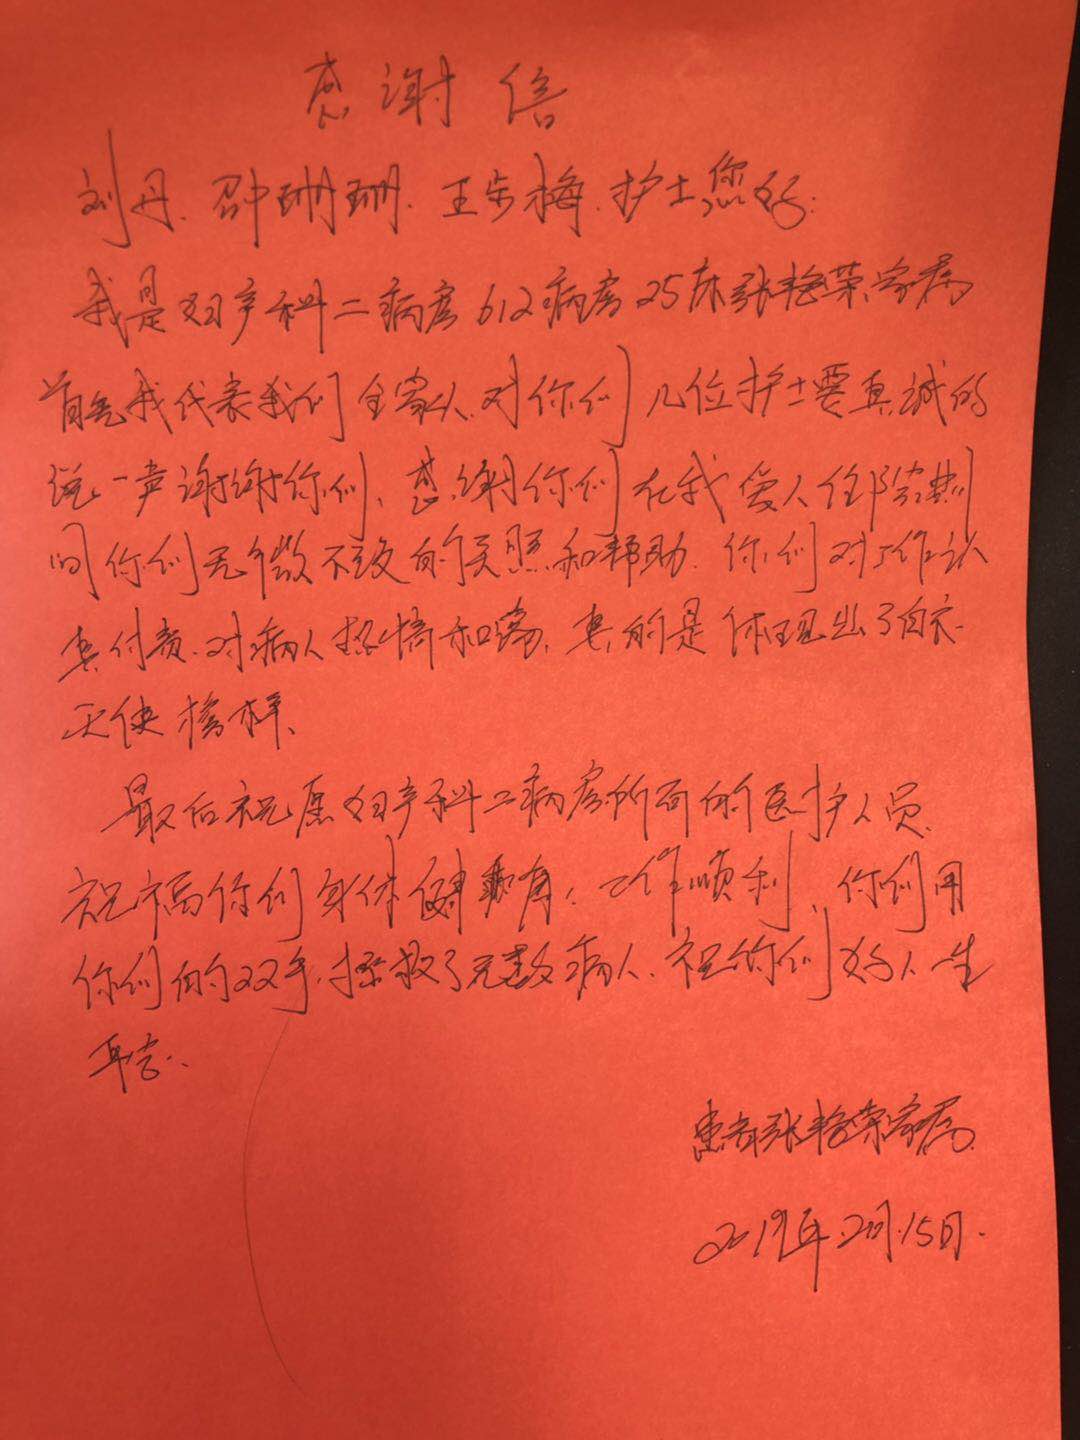 感谢信
刘丹、邵珊珊、王步梅、护士您好:
我是妇产科二病房612病房25床张艳荣家属
首先我代表我们全家人、对你们几位护士要真诚的
说一声谢谢你们、感谢你们在我爱人住院期
间你们无微不致的关照和帮助、你们对工作认
真付责、对病人热情和蔼、真的是体现出了白衣
天使榜样、
最后祝愿妇产科二病房所有的医护人员、
祝福你们身体健康、工作顺利、你们用
你们的双手、拯救了无数病人、祝你们好人一生
平安.
患者张艳荣家属
2019年.2月.15日.